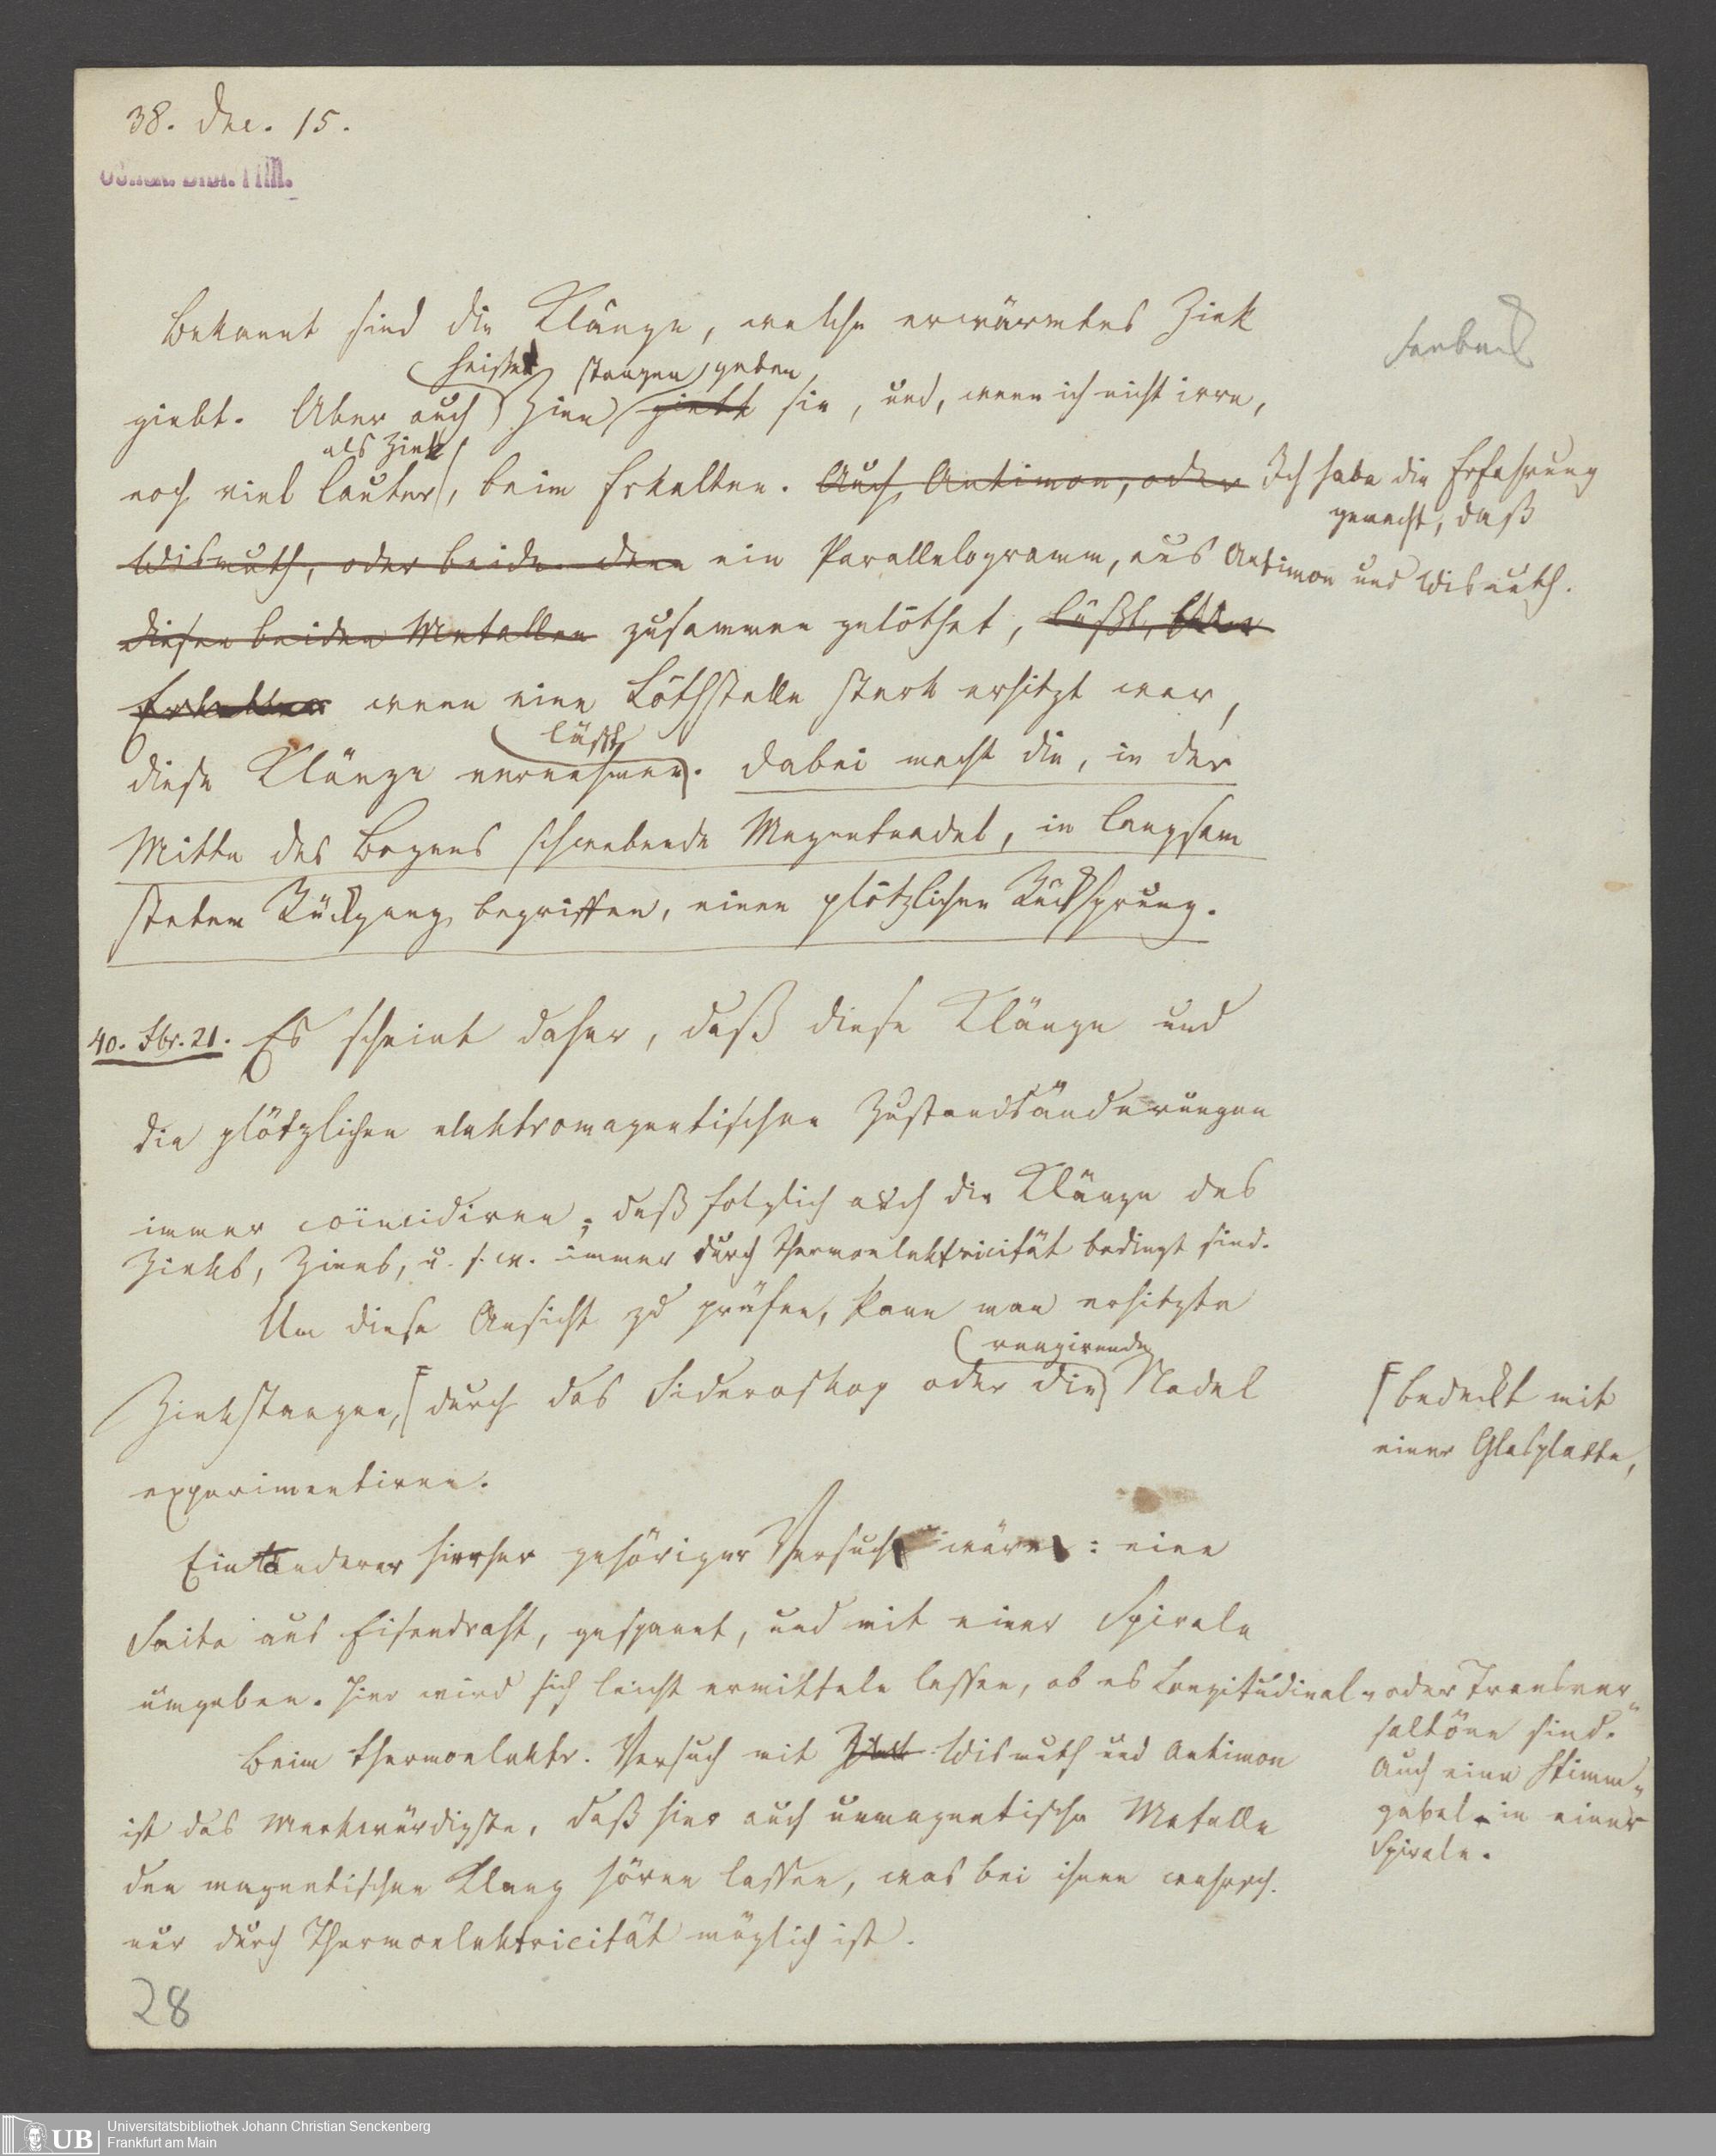 38. Dec. 15.
Bekannt sind die Klänge, welche erwärmtes Zink
heisse stangen geben
giebt. Aber auch Zinn giebt sie, und, wenn ich nicht irre,
als Zink
noch viel lauter, beim Erkalten. Auch Antimon, oder Ich habe die Erfahrung
gemacht, daß
Wismuth, oder beide. denn ein Parallelogramm, aus Antimon und Wismuth.
diesen beiden Metallen zusammen gelöthet, läßt,
Erkalten wenn eine Löthstelle stark erhitzt war,
läßt
diese Klänge vernehmen. Dabei macht die, in der
Mitte des Bogens schwebende Magentnadel, in langsam
stetem Rückgang begriffen, einen plötzlichen Rücksprung.
40. Fbr. 21. Es scheint daher, daß diese Klänge und
die plötzlichen elektromagnetischen Zustandsänderungen
immer coincidiren; daß folglich auch die Klänge des
Zinks, Zinns, u. s. w. immer durch Thermoelektricität bedingt sind.
Um diese Ansicht zu prüfen, kann man erhitzte
reagirende
Zinkstangen, durch das Sideroskop oder die Nadel
bedeckt mit
einer Glasplatte,
experimentiren.
Ein anderer hierher gehöriger Versuch wäre: eine
Saite aus Eisendraht, gespannt, und mit einer Spirale
umgeben. Hier wird sich leicht ermitteln lassen, ob es Longitudinal- oder Transver-
saltöne sind.
Auch eine Stimm-
gabel in einer
Spirale.
Beim thermoelektr. Versuch mit Zink Wismuth und Antimon
ist das Merkwürdigste, daß hier auch unmagnetische Metalle
den magnetischen Klang hören lassen, was bei ihnen wahrsch.
nur durch Thermoelektricität möglich ist.
28
UB
Universitätsbibliothek Johann Christian Senckenberg
Frankfurt am Main